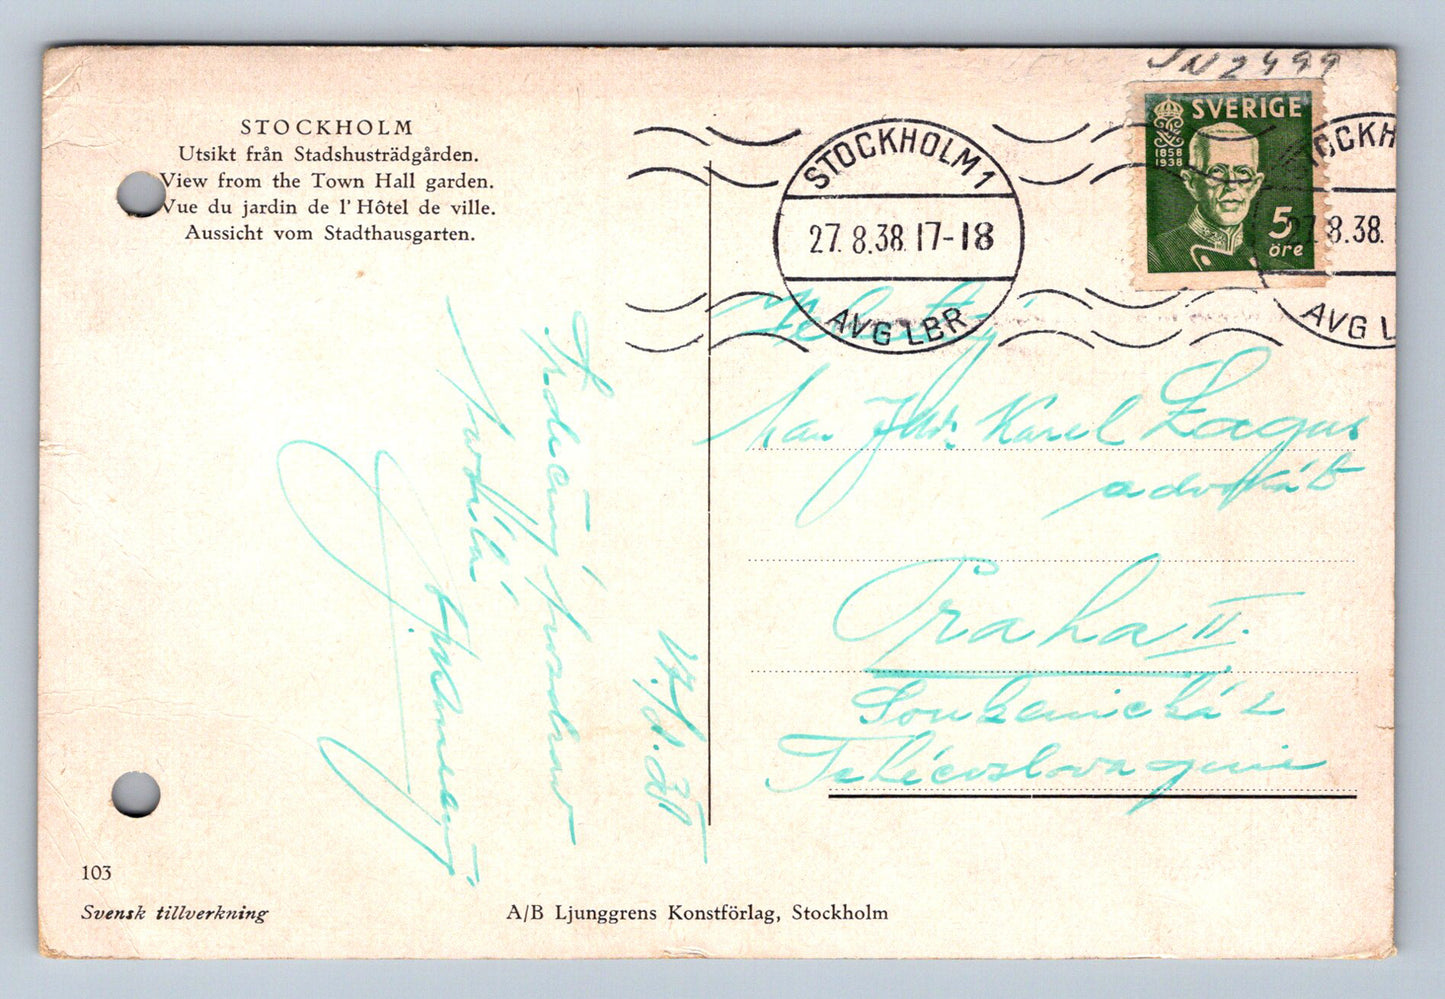 JN2499
STOCKHOLM
Utsikt från Stadshusträdgården.
View from the Town Hall garden.
Vue du jardin de l'Hôtel de ville.
Aussicht vom Stadthausgarten.
STOCKHOLM 1
27. 8.38. 17-18
AVG LBR
SVERIGE
1858
1938
5
öre
STOCKH
27. 8.38.
AVG L
Srdečný pozdrav
posílá
Karel
advokát
Praha II.
Soukenická 2
Tchécoslovaquie
103
Svensk tillverkning
A/B Ljunggrens Konstförlag, Stockholm